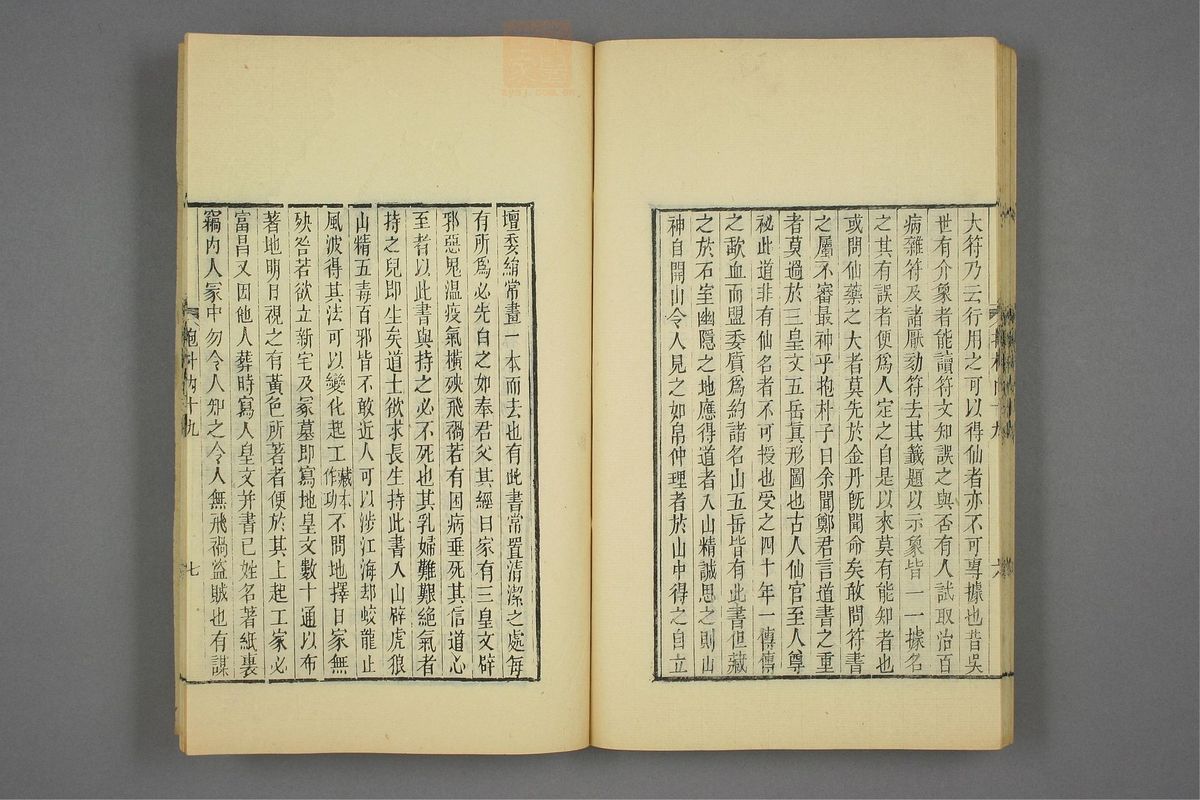 大符乃云行用之可以得仙者亦不可專據也昔吳
世有介象者能讀符文知誤之與否有人試取治百
病雜符及諸厭劾符去其籤題以示象皆一一據名
之其有誤者便爲人定之自是以來莫有能知者也
或問仙藥之大者莫先於金丹旣聞命矣敢問符書
之屬不審最神乎抱朴子曰余聞鄭君言道書之重
者莫過於三皇文五岳眞形圖也古人仙官至人尊
祕此道非有仙名者不可授也受之四十年一傳傳
之歃血而盟委質爲約諸名山五岳皆有此書但藏
之於石室幽隱之地應得道者入山精誠思之則山
神自開山令人見之如帛仲理者於山中得之自立
壇委絹常畫一本而去也有此書常置清潔之處每
有所爲必先白之如奉君父其經曰家有三皇文辟
邪惡鬼温疫氣橫殃飛禍若有困病垂死其信道心
至者以此書與持之必不死也其乳婦難艱絶氣者
持之兒即生矣道士欲求長生持此書入山辟虎狼
山精五毒百邪皆不敢近人可以涉江海却蛟龍止
風波得其法可以變化起工藏本作功不問地擇日家無
殃咎若欲立新宅及冢墓即寫地皇文數十通以布
著地明日視之有黃色所著者便於其上起工家必
富昌又因他人葬時寫人皇文并書已姓名著紙裏
竊内人冢中勿令人知之令人無飛禍盜賊也有謀
抱朴内十九
七